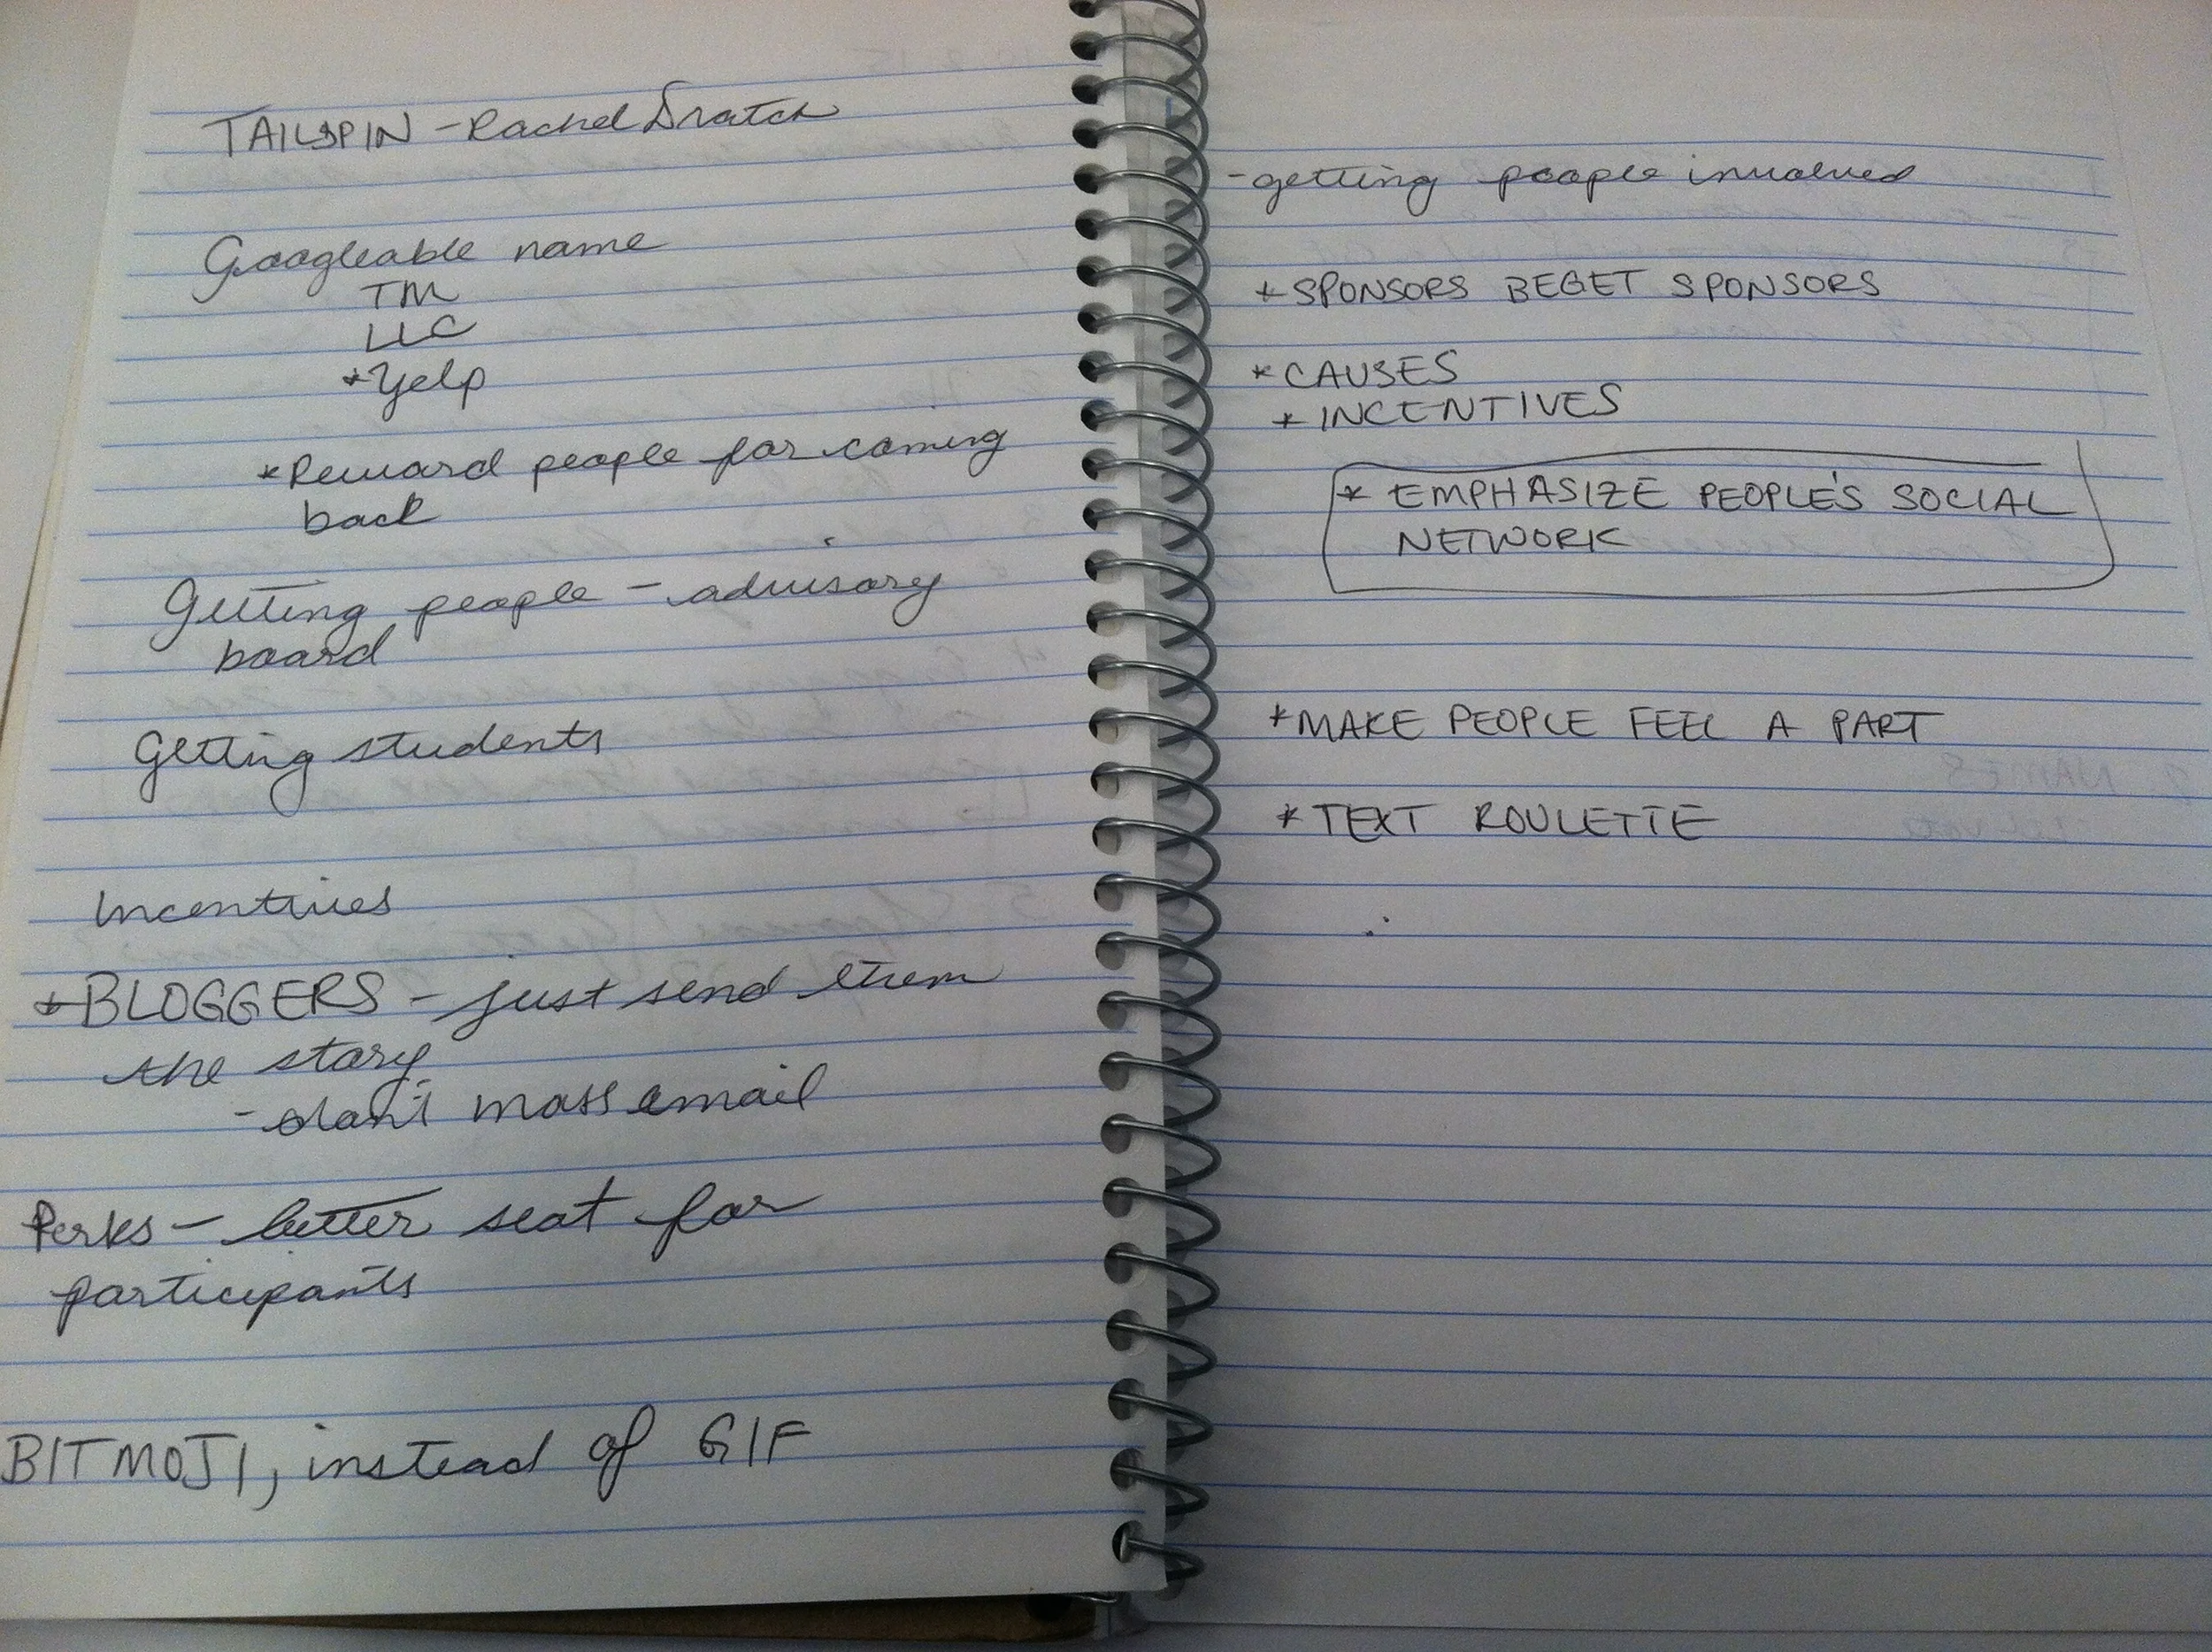 TAILSPIN - Rachel Dratch
Googleable name
TM
LLC
*Yelp
*Reward people for coming
back
Getting people - advisory
board
Getting students
Incentives
*BLOGGERS - just send them
the story
- don't mass email
Perks - better seat for
participants
BITMOJI, instead of GIF
- getting people involved
*SPONSORS BEGET SPONSORS
*CAUSES
*INCENTIVES
* EMPHASIZE PEOPLE'S SOCIAL
NETWORK
*MAKE PEOPLE FEEL A PART
*TEXT ROULETTE